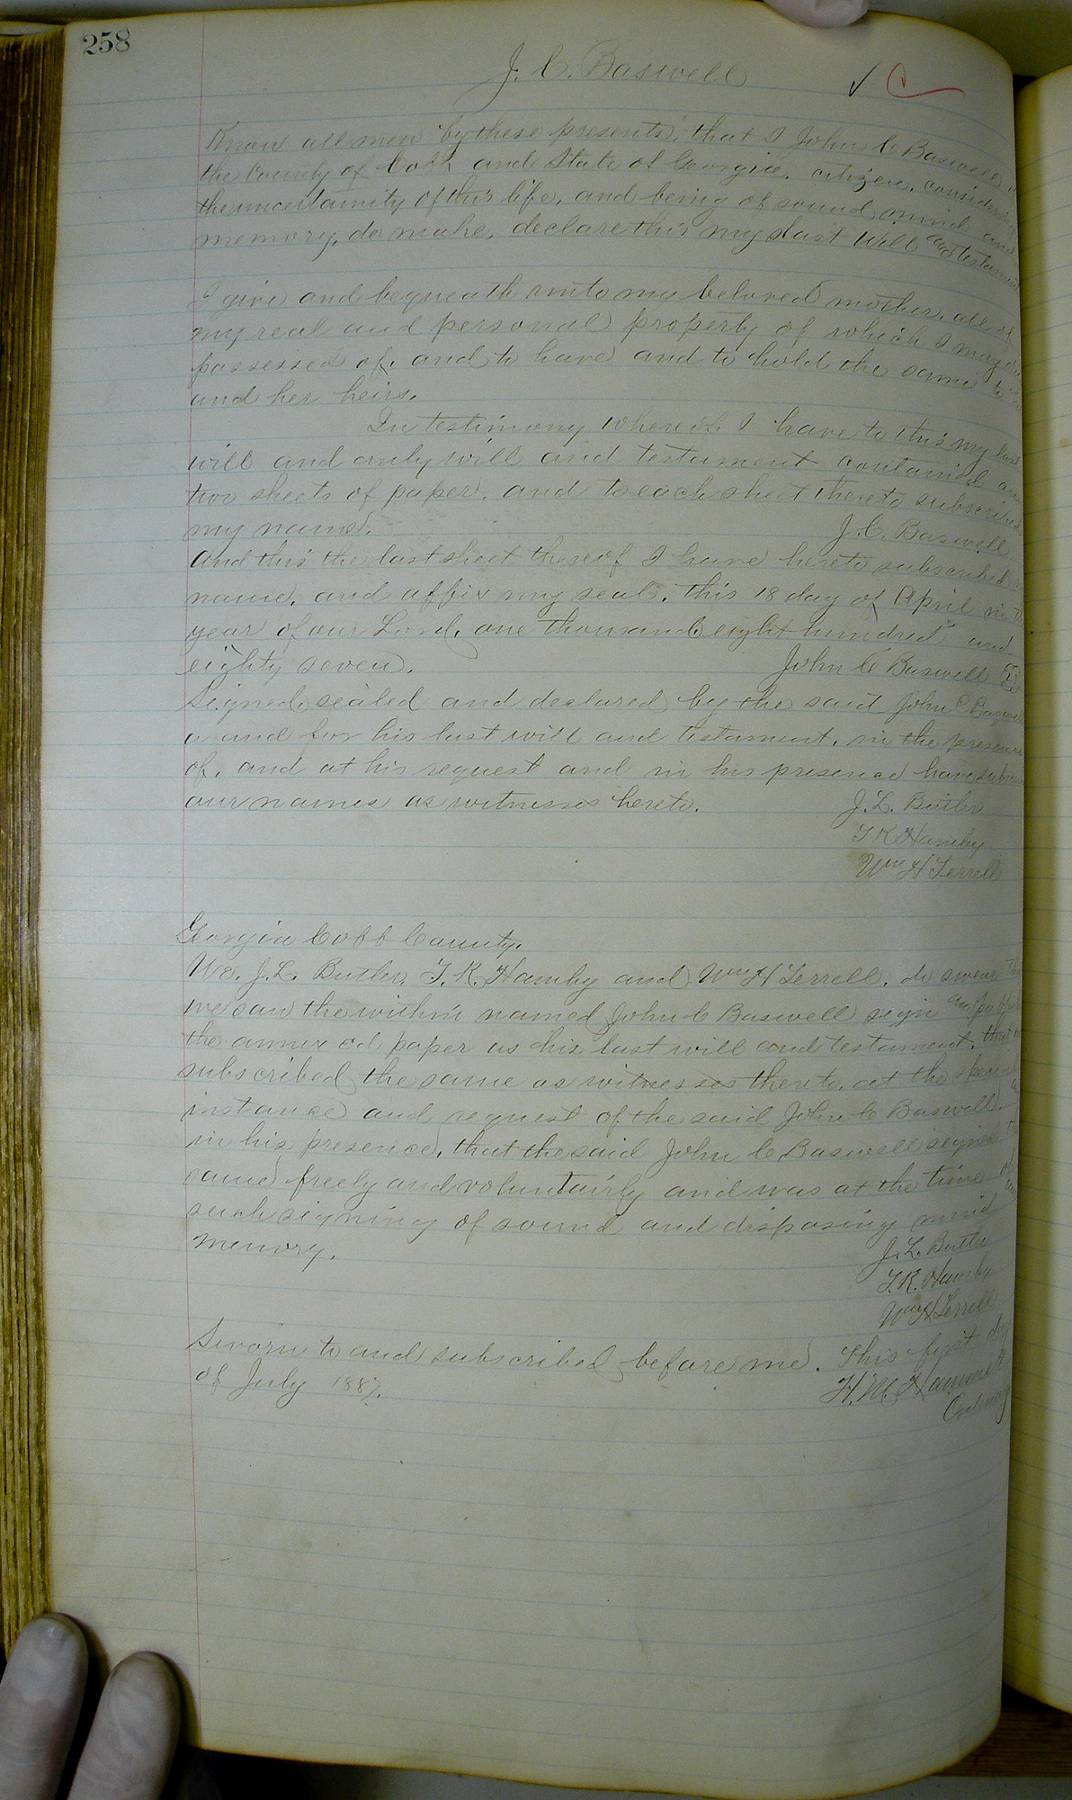 258
J. C. Baswell
Know all men by these presents, that I John C Baswell of
the County of Cobb and State of Georgia, citizen, considering
the uncertainity of this life, and being of sound mind and
memory, do make, declare this my last will and testament
I give and bequeath unto my beloved mother, all of
my real and personal property of which I may
possessed of, and to have and to hold the same to
and her heirs.
In testimony whereof, I have to this my last
will and only will and testament contained
two sheets of paper, and to each sheet thereto subscribed
my name. J. C. Baswell
And this the last sheet thereof I have hereto subscribed
name, and affix my seal, this 18 day of April in
year of our Lord, one thousand eight hundred and
eighty seven. John C Baswell
Signed, sealed and declared by the said John C Baswell
a and for his last will and testament, in the presence
of, and at his request and in his presence have
our names as witnesses hereto. J. L. Butler
T K Hamby
Wm H Terrell
Georgia Cobb County.
We. J. L. Butler, T. K. Hamby and Wm H Terrell, do swear
we saw the within named John C Baswell sign
the annexed paper as his last will and testament, that
subscribed the same as witnesses thereto, at the
instance and request of the said John C Baswell,
in his presence, that the said John C Baswell signed
same freely and voluntairly and was at the time
such signing of sound and disposing mind
memory. J. L. Butler
T. K. Hamby
Wm H Terrell
Sworn to and subscribed before me. This first
of July 1887. H. M. Hammett
Ordinary